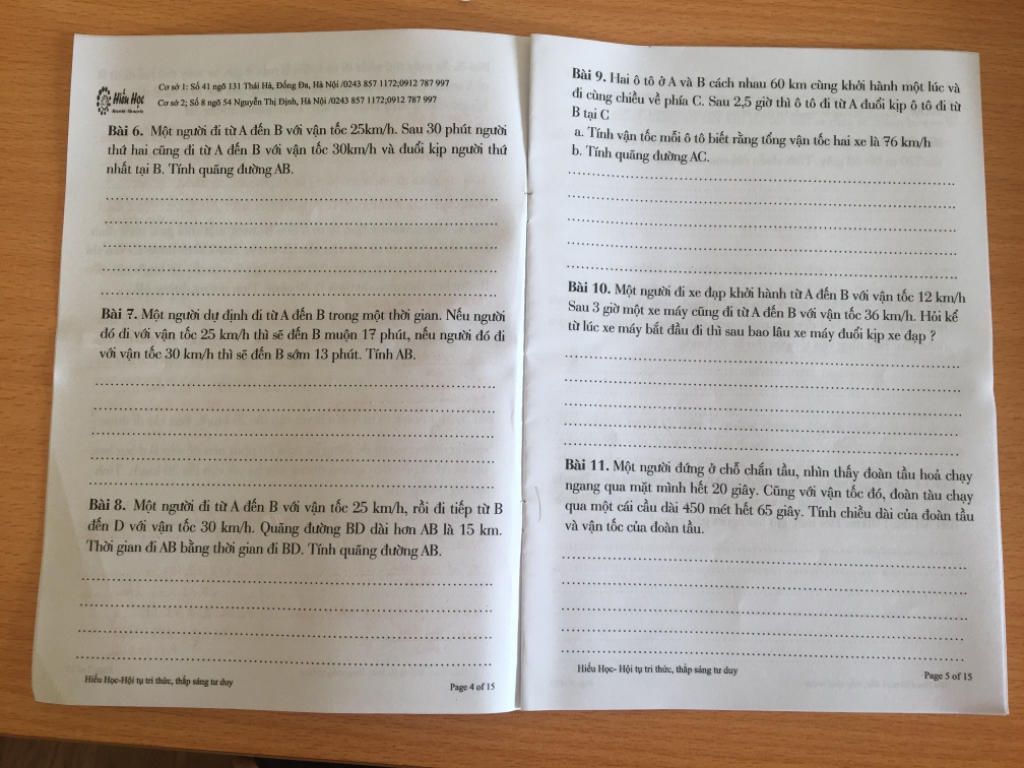 Hiếu Học
Cơ sở 1: Số 41 ngõ 131 Thái Hà, Đống Đa, Hà Nội /0243 857 1172;0912 787 997
Cơ sở 2; Số 8 ngõ 54 Nguyễn Thị Định, Hà Nội /0243 857 1172;0912 787 997
Bài 6. Một người đi từ A đến B với vận tốc 25km/h. Sau 30 phút người
thứ hai cũng đi từ A đến B với vận tốc 30km/h và đuổi kịp người thứ
nhất tại B. Tính quãng đường AB.
Bài 7. Một người dự định đi từ A đến B trong một thời gian. Nếu người
đó đi với vận tốc 25 km/h thì sẽ đến B muộn 17 phút, nếu người đó đi
với vận tốc 30 km/h thì sẽ đến B sớm 13 phút. Tính AB.
Bài 8. Một người đi từ A đến B với vận tốc 25 km/h, rồi đi tiếp từ B
đến D với vận tốc 30 km/h. Quãng đường BD dài hơn AB là 15 km.
Thời gian đi AB bằng thời gian đi BD. Tính quãng đường AB.
Hiếu Học-Hội tụ tri thức, thắp sáng tư duy
Page 4 of 15
Bài 9. Hai ô tô ở A và B cách nhau 60 km cùng khởi hành một lúc và
đi cùng chiều về phía C. Sau 2,5 giờ thì ô tô đi từ A đuổi kịp ô tô đi từ
B tại C
a. Tính vận tốc mỗi ô tô biết rằng tổng vận tốc hai xe là 76 km/h
b. Tính quãng đường AC.
Bài 10. Một người đi xe đạp khởi hành từ A đến B với vận tốc 12 km/h
Sau 3 giờ một xe máy cũng đi từ A đến B với vận tốc 36 km/h. Hỏi kể
từ lúc xe máy bắt đầu đi thì sau bao lâu xe máy đuổi kịp xe đạp ?
Bài 11. Một người đứng ở chỗ chắn tầu, nhìn thấy đoàn tầu hoả chạy
ngang qua mặt mình hết 20 giây. Cũng với vận tốc đó, đoàn tàu chạy
qua một cái cầu dài 450 mét hết 65 giây. Tính chiều dài của đoàn tầu
và vận tốc của đoàn tầu.
Hiếu Học- Hội tụ tri thức, thắp sáng tư duy
Page 5 of 15